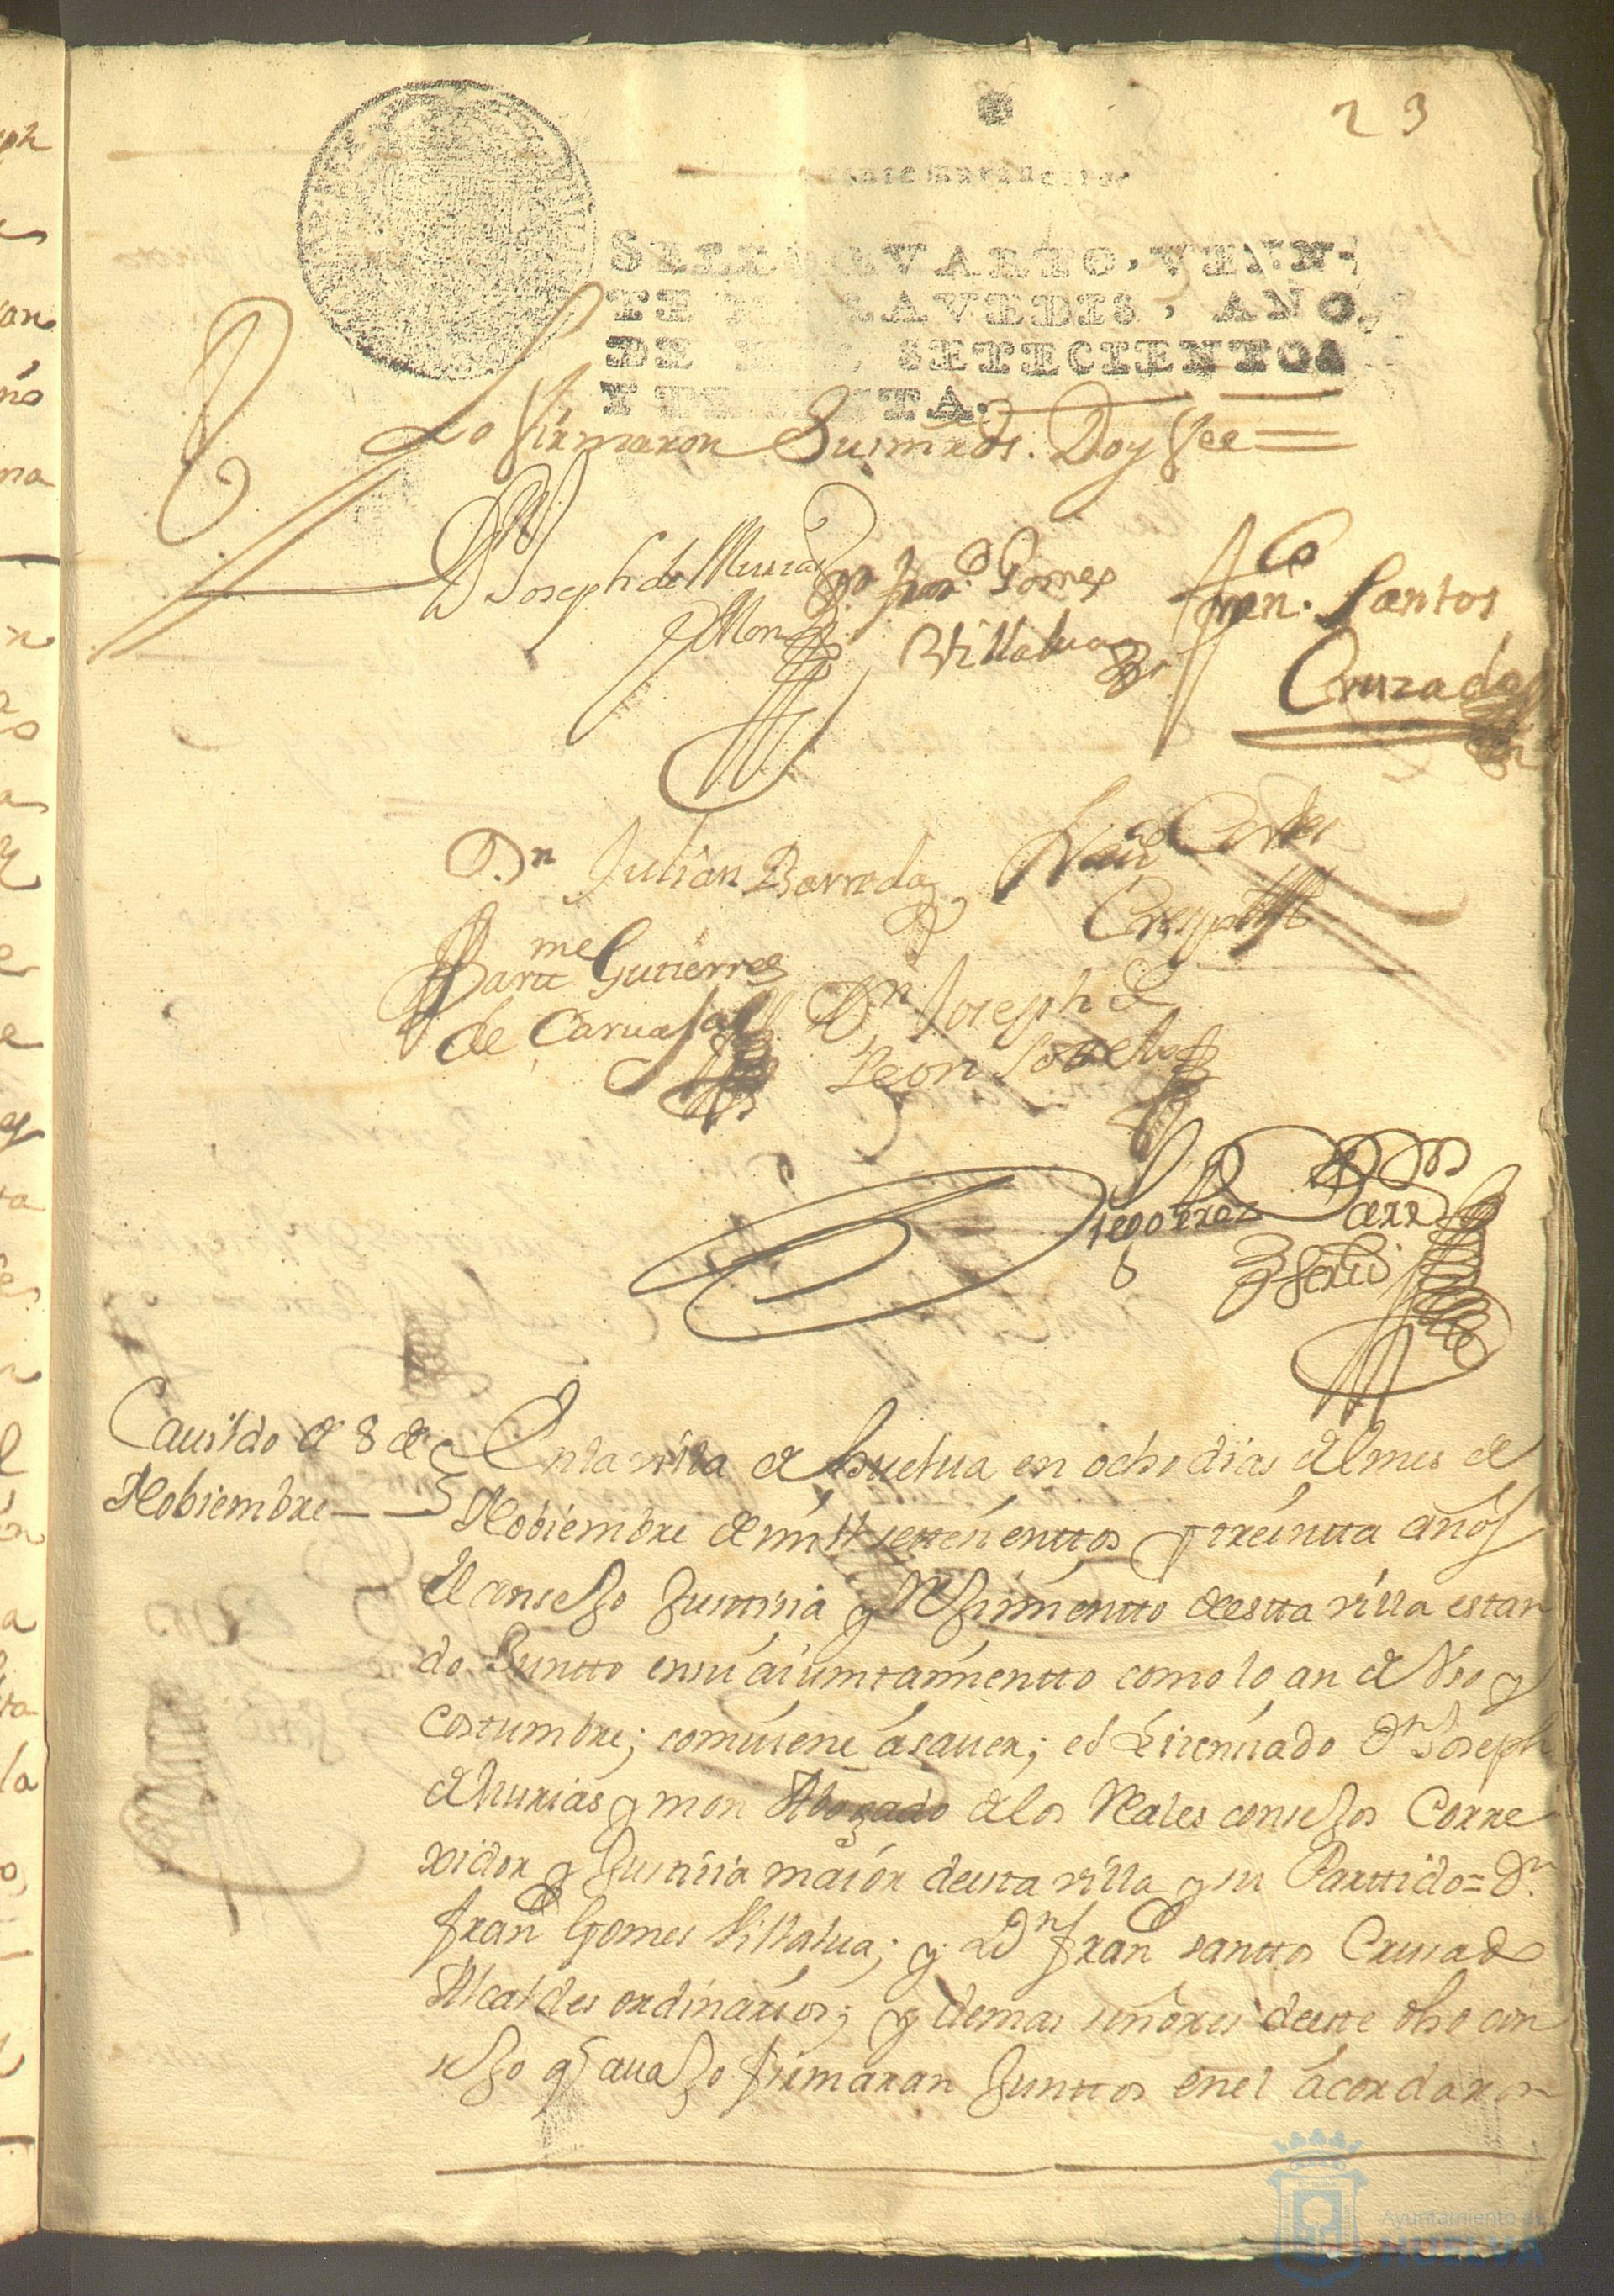 23
SELLO QVARTO, VEIN-
TE MARAVEDIS, AÑO
DE MIL SETECIENTOS
Y TREINTA.
Lo firmaron Sus mrds. Doy fee
Dn Joseph de Murias
y Mon
Dn franco Gomes
Villalua
Franco Santos
Cruzado
Dn Julian Barreda
Franco Cortes
Crespo
Barme Gutierres
de Caruajal
Dn Joseph de
Leon Sotelo
Diego
Cauildo de 8 de
Nobiembre
En la villa de huelua en ocho dias del mes de
Nobiembre de mill settecienttos y treintta años
el consejo Justtisia y Rejimientto destta villa estan
do Juntto en su aiuntamientto como lo an de Vso y
costumbre; comuiene ásauer; el Lisensiado Dn Joseph
de Murias y mon Abogado de los Reales consejos Corre
xidor y Justisia maior desta villa y su Parttido = Dn
franco Gomes Villalua; y Dn franco santtos Crusado
Alcaldes ordinarios; y demas señores deste dho con
sejo q auajo firmaran Junttos en el ácordaron
Ayuntamiento de
HUELVA